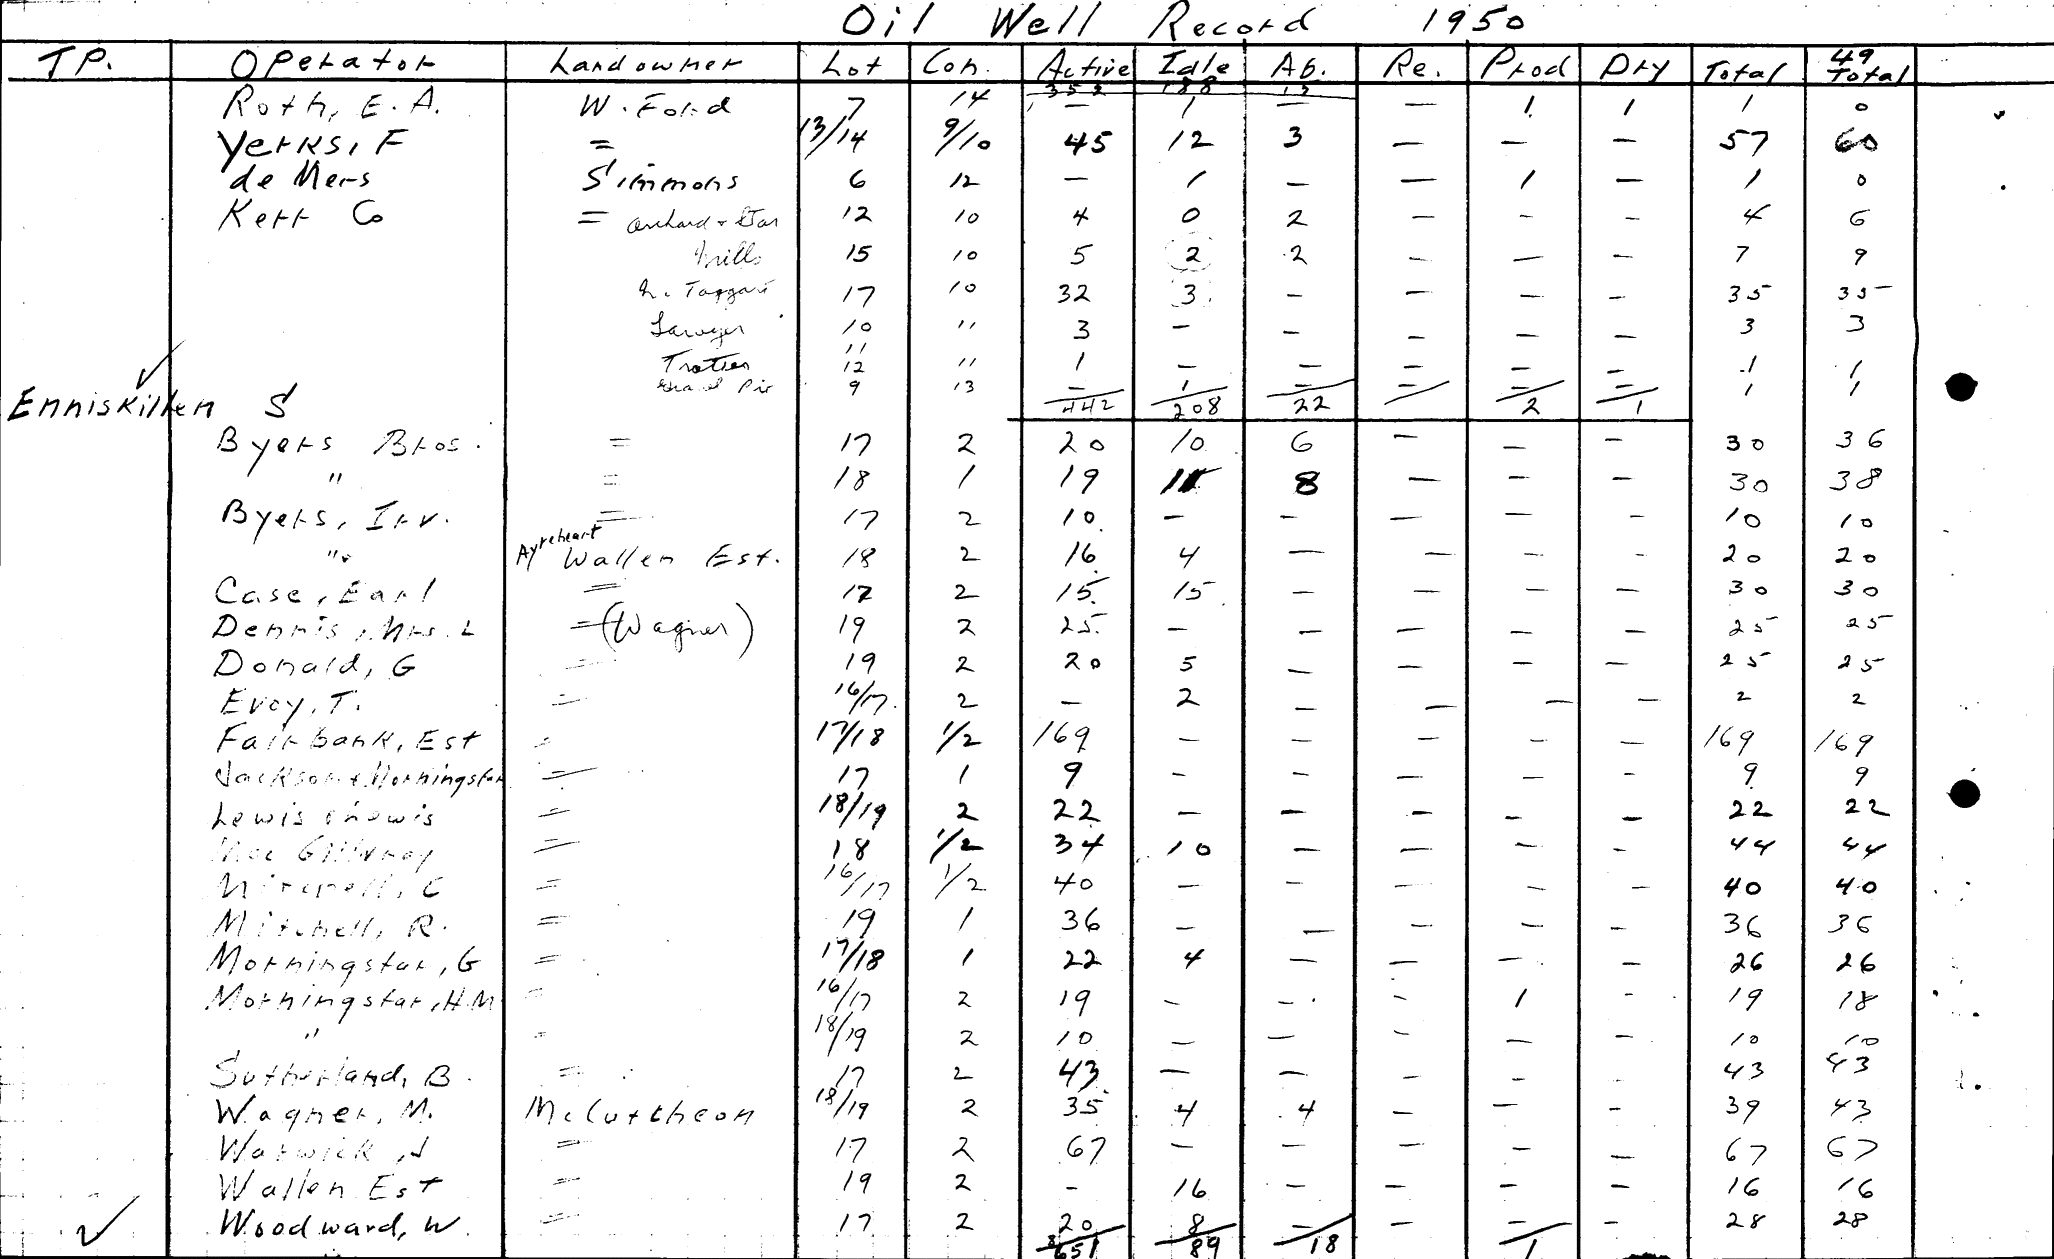 Oil Well Record 1950
TP. Operator Landowner Lot Con. Active Idle Ab. Re. Prod Dry Total 49 Total
352 188 13
Roth, E. A. W. Ford 7 14 — 1 — — 1 1 1 0
Yerks, F = 13/14 9/10 45 12 3 — — — 57 60
de Mers Simmons 6 12 — 1 — — 1 — 1 0
Kerr Co = Orchard + 12 10 4 0 2 — - - 4 6
Mills 15 10 5 2 2 — — - 7 9
Taggart 17 10 32 3 - — — — 35 35
Sawyer 10 11 " 3 - — — — — 3 3
12 " 1 — — — — — 1 1
9 13 — 1 — — — — 1 1
Enniskillen S 442 208 22 — 2 1
Byers Bros. = 17 2 20 10 6 — — — 30 36
" = 18 1 19 11 8 — — — 30 38
Byers, Irv. = 17 2 10 — - — — - 10 10
" Ayreheart Wallen Est. 18 2 16 4 — — — — 20 20
Case, Earl = 17 2 15 15 — — — — 30 30
Dennis, Mrs. L = (Wagner) 19 2 25 - — — — — 25 25
Donald, G = 19 2 20 5 — — — — 25 25
Evoy, T. = 16/17 2 — 2 — — — — 2 2
Fairbank, Est = 17/18 1/2 169 — — — — — 169 169
Jackson + Morningstar = 17 1 9 - — — — - 9 9
Lewis = 18/19 2 22 — — — — — 22 22
Mac Gillivray = 18 1/2 34 10 — — — - 44 44
Mitchell, C = 16/17 1/2 40 — - — — — 40 40
Mitchell, R. = 19 1 36 - — — — — 36 36
Morningstar, G = 17/18 1 22 4 — — — — 26 26
Morningstar, H.M = 16/17 2 19 - — - 1 - 19 18
" = 18/19 2 10 — — — — — 10 10
Sutherland, B. = 17 2 43 — — — — — 43 43
Wagner, M. McCutcheon 18/19 2 35 4 4 — — - 39 43
Warwick, J = 17 2 67 - - — — — 67 67
Wallen Est = 19 2 - 16 — — — — 16 16
Woodward, W = 17 2 20 8 — — — - 28 28
651 89 18 1